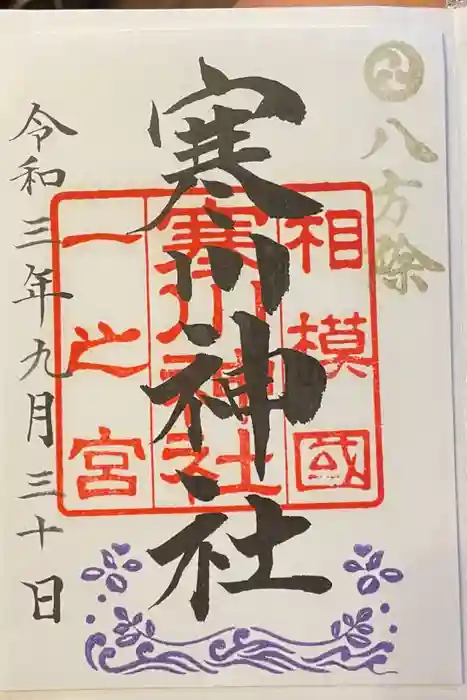 八方除
寒川神社
相模國
寒川神社
一之宮
令和三年九月三十日